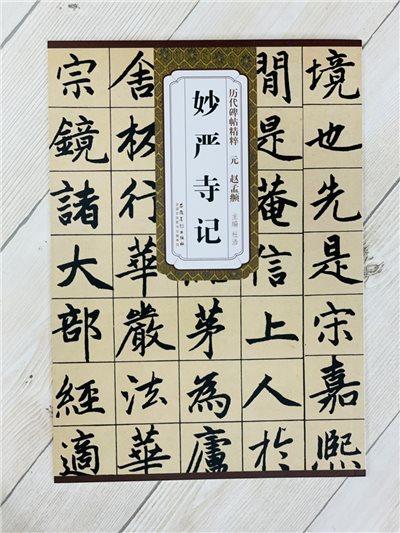 境也先是宋嘉熙
閒是菴信上人於
茅為廬
舍板行華嚴法華
宗鏡諸大部經適
历代碑帖精粹 元 赵孟頫
主编 杜浩
妙严寺记
安徽美术出版社